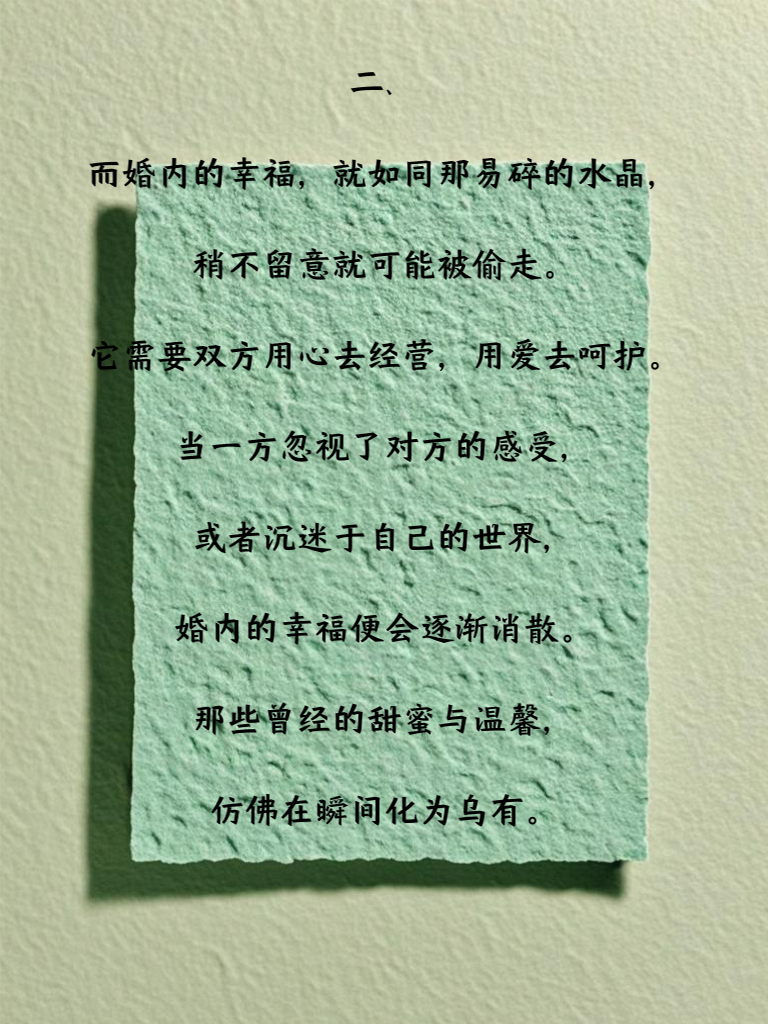 二、
而婚内的幸福，就如同那易碎的水晶，
稍不留意就可能被偷走。
它需要双方用心去经营，用爱去呵护。
当一方忽视了对方的感受，
或者沉迷于自己的世界，
婚内的幸福便会逐渐消散。
那些曾经的甜蜜与温馨，
仿佛在瞬间化为乌有。